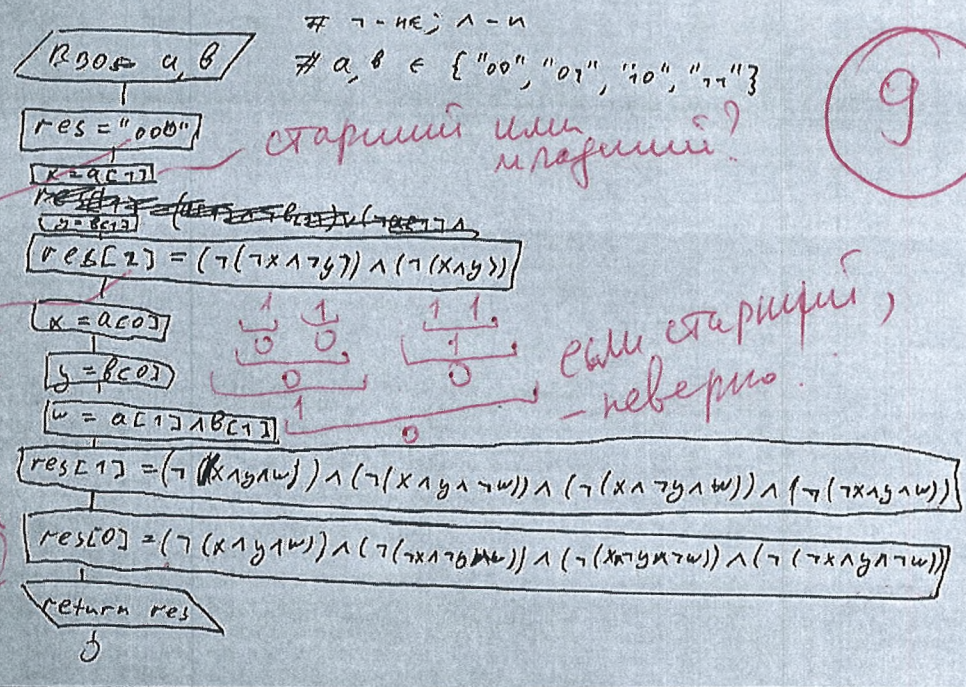 # ¬ - не; ∧ - и
Ввод a, b
# a, b ∈ {"00", "01", "10", "11"}
9
res = "000"
старший или
младший?
x = a[1]
y = b[1]
res[2] = (¬(¬x∧¬y)) ∧ (¬(x∧y))
1 1 1 1.
0 0. 1.
0 0
1
0
если старший,
- неверно.
x = a[0]
y = b[0]
w = a[1]∧b[1]
res[1] = (¬(x∧y∧w)) ∧ (¬(x∧y∧¬w)) ∧ (¬(x∧¬y∧w)) ∧ (¬(¬x∧y∧w))
res[0] = (¬(x∧y∧w)) ∧ (¬(¬x∧¬y∧w)) ∧ (¬(x∧¬y∧¬w)) ∧ (¬(¬x∧y∧¬w))
return res